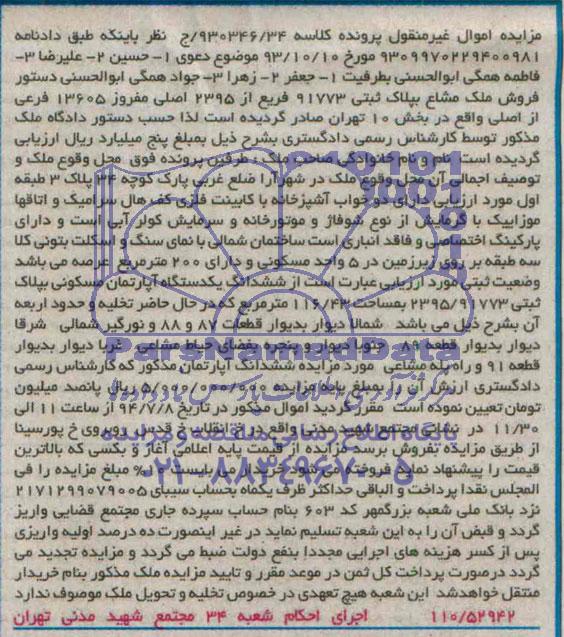 مزایده اموال غیرمنقول پرونده کلاسه ۹۳۰۳۴۶/۳۴/ج نظر باینکه طبق دادنامه
۹۳۰۹۹۷۰۲۲۹۴۰۰۹۸۱ مورخ ۹۳/۱۰/۱۰ موضوع دعوی ۱- حسین ۲- علیرضا ۳-
فاطمه همگی ابوالحسنی بطرفیت ۱- جعفر ۲- زهرا ۳-جواد همگی ابوالحسنی دستور
فروش ملک مشاع بپلاک ثبتی ۹۱۷۷۳ فریع از ۲۳۹۵ اصلی مفروز ۱۳۶۰۵ فرعی
از اصلی واقع در بخش ۱۰ تهران صادر گردیده است لذا حسب دستور دادگاه ملک
مذکور توسط کارشناس رسمی دادگستری بشرح ذیل بمبلغ پنج میلیارد ریال ارزیابی
گردیده است نام و نام خانوادگی صاحب ملک : طرفین پرونده فوق محل وقوع ملک و
توصیف اجمالی آن محل وقوع ملک در شهرآرا ضلع غربی پارک کوچه ۳۴ پلاک ۳ طبقه
اول مورد ارزیابی دارای دو خواب آشپزخانه با کابینت فلزی کف هال سرامیک و اتاقها
موزاییک با گرمایش از نوع شوفاژ و موتورخانه و سرمایش کولر آبی است و دارای
پارکینگ اختصاصی و فاقد انباری است ساختمان شمالی با نمای سنگ و اسکلت بتونی کلا
سه طبقه بر روی زیرزمین در ۵ واحد مسکونی و دارای ۲۰۰ مترمربع عرصه می باشد
وضعیت ثبتی مورد ارزیابی عبارت است از ششدانگ یکدستگاه آپارتمان مسکونی بپلاک
ثبتی ۲۳۹۵/۹۱۷۷۳ بمساحت ۱۱۶/۴۳ مترمربع که در حال حاضر تخلیه و حدود اربعه
آن بشرح ذیل می باشد شمالا دیوار بدیوار قطعات ۸۷ و ۸۸ و نورگیر شمالی شرقا
دیوار بدیوار قطعه ۸۹ جنوبا دیوار و پنجره بفضای حیاط مشاعی غربا دیوار بدیوار
قطعه ۹۱ و راه پله مشاعی مورد مزایده ششدانگ آپارتمان مذکور که کارشناس رسمی
دادگستری ارزش آن را بمبلغ پایه مزایده ۵/۰۰۰/۰۰۰/۰۰۰ ریال پانصد میلیون
تومان تعیین نموده است مقرر گردید اموال مذکور در تاریخ ۹۴/۷/۸ از ساعت ۱۱ الی
۱۱/۳۰ در نشانی مجتمع شهید مدنی واقع در خ انقلاب خ قدس روبروی خ پورسینا
از طریق مزایده بفروش برسد مزایده از قیمت پایه اعلامی آغاز و بکسی که بالاترین
قیمت را پیشنهاد نماید فروخته می شود خریدار می بایست ۱۰% مبلغ مزایده را فی
المجلس نقدا پرداخت و الباقی حداکثر ظرف یکماه بحساب سیبای ۲۱۷۱۲۹۹۰۷۹۰۰۵
نزد بانک ملی شعبه بزرگمهر کد ۶۰۳ بنام حساب سپرده جاری مجتمع قضایی واریز
گردد و قبض آن را به این شعبه تسلیم نماید در غیر اینصورت ده درصد اولیه واریزی
پس از کسر هزینه های اجرایی مجددا بنفع دولت ضبط می گردد و مزایده تجدید می
گردد درصورت پرداخت کل ثمن در موعد مقرر و تایید مزایده ملک مذکور بنام خریدار
منتقل خواهدشد این شعبه هیچ تعهدی در خصوص تخلیه و تحویل ملک موصوف ندارد
۱۱۰/۵۲۹۴۲ اجرای احکام شعبه ۳۴ مجتمع شهید مدنی تهران
ParsNamadData
پایگاه اطلاع رسانی مناقصه و مزایده
۰۲۱-۸۸۳۴۹۶۷۰-۵